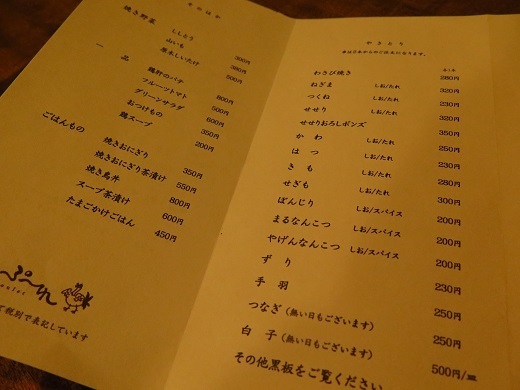 焼き野菜
ししとう 300円
山いも 380円
原木しいたけ 500円
一品
鶏肝のパテ 800円
フルーツトマト 500円
グリーンサラダ 600円
おつけもの 350円
鶏スープ 200円
ごはんもの
焼きおにぎり 350円
焼きおにぎり茶漬け 550円
焼き鳥丼 800円
スープ茶漬け 600円
たまごかけごはん 450円
て税別で表記しています
やきとり
串は2本からのご注文になります。
わさび焼き 280円
ねぎま しお/たれ 320円
つくね しお/たれ 230円
せせり しお/たれ 320円
せせりおろしポンズ 350円
かわ しお/たれ 250円
はつ しお/たれ 230円
きも しお/たれ 280円
せぎも しお/たれ 300円
ぼんじり しお/スパイス 200円
まるなんこつ しお/スパイス 200円
やげんなんこつ しお/スパイス 200円
ずり 230円
手羽 250円
つなぎ(無い日もございます) 250円
白子(無い日もございます) 500円/皿
その他黒板をご覧ください